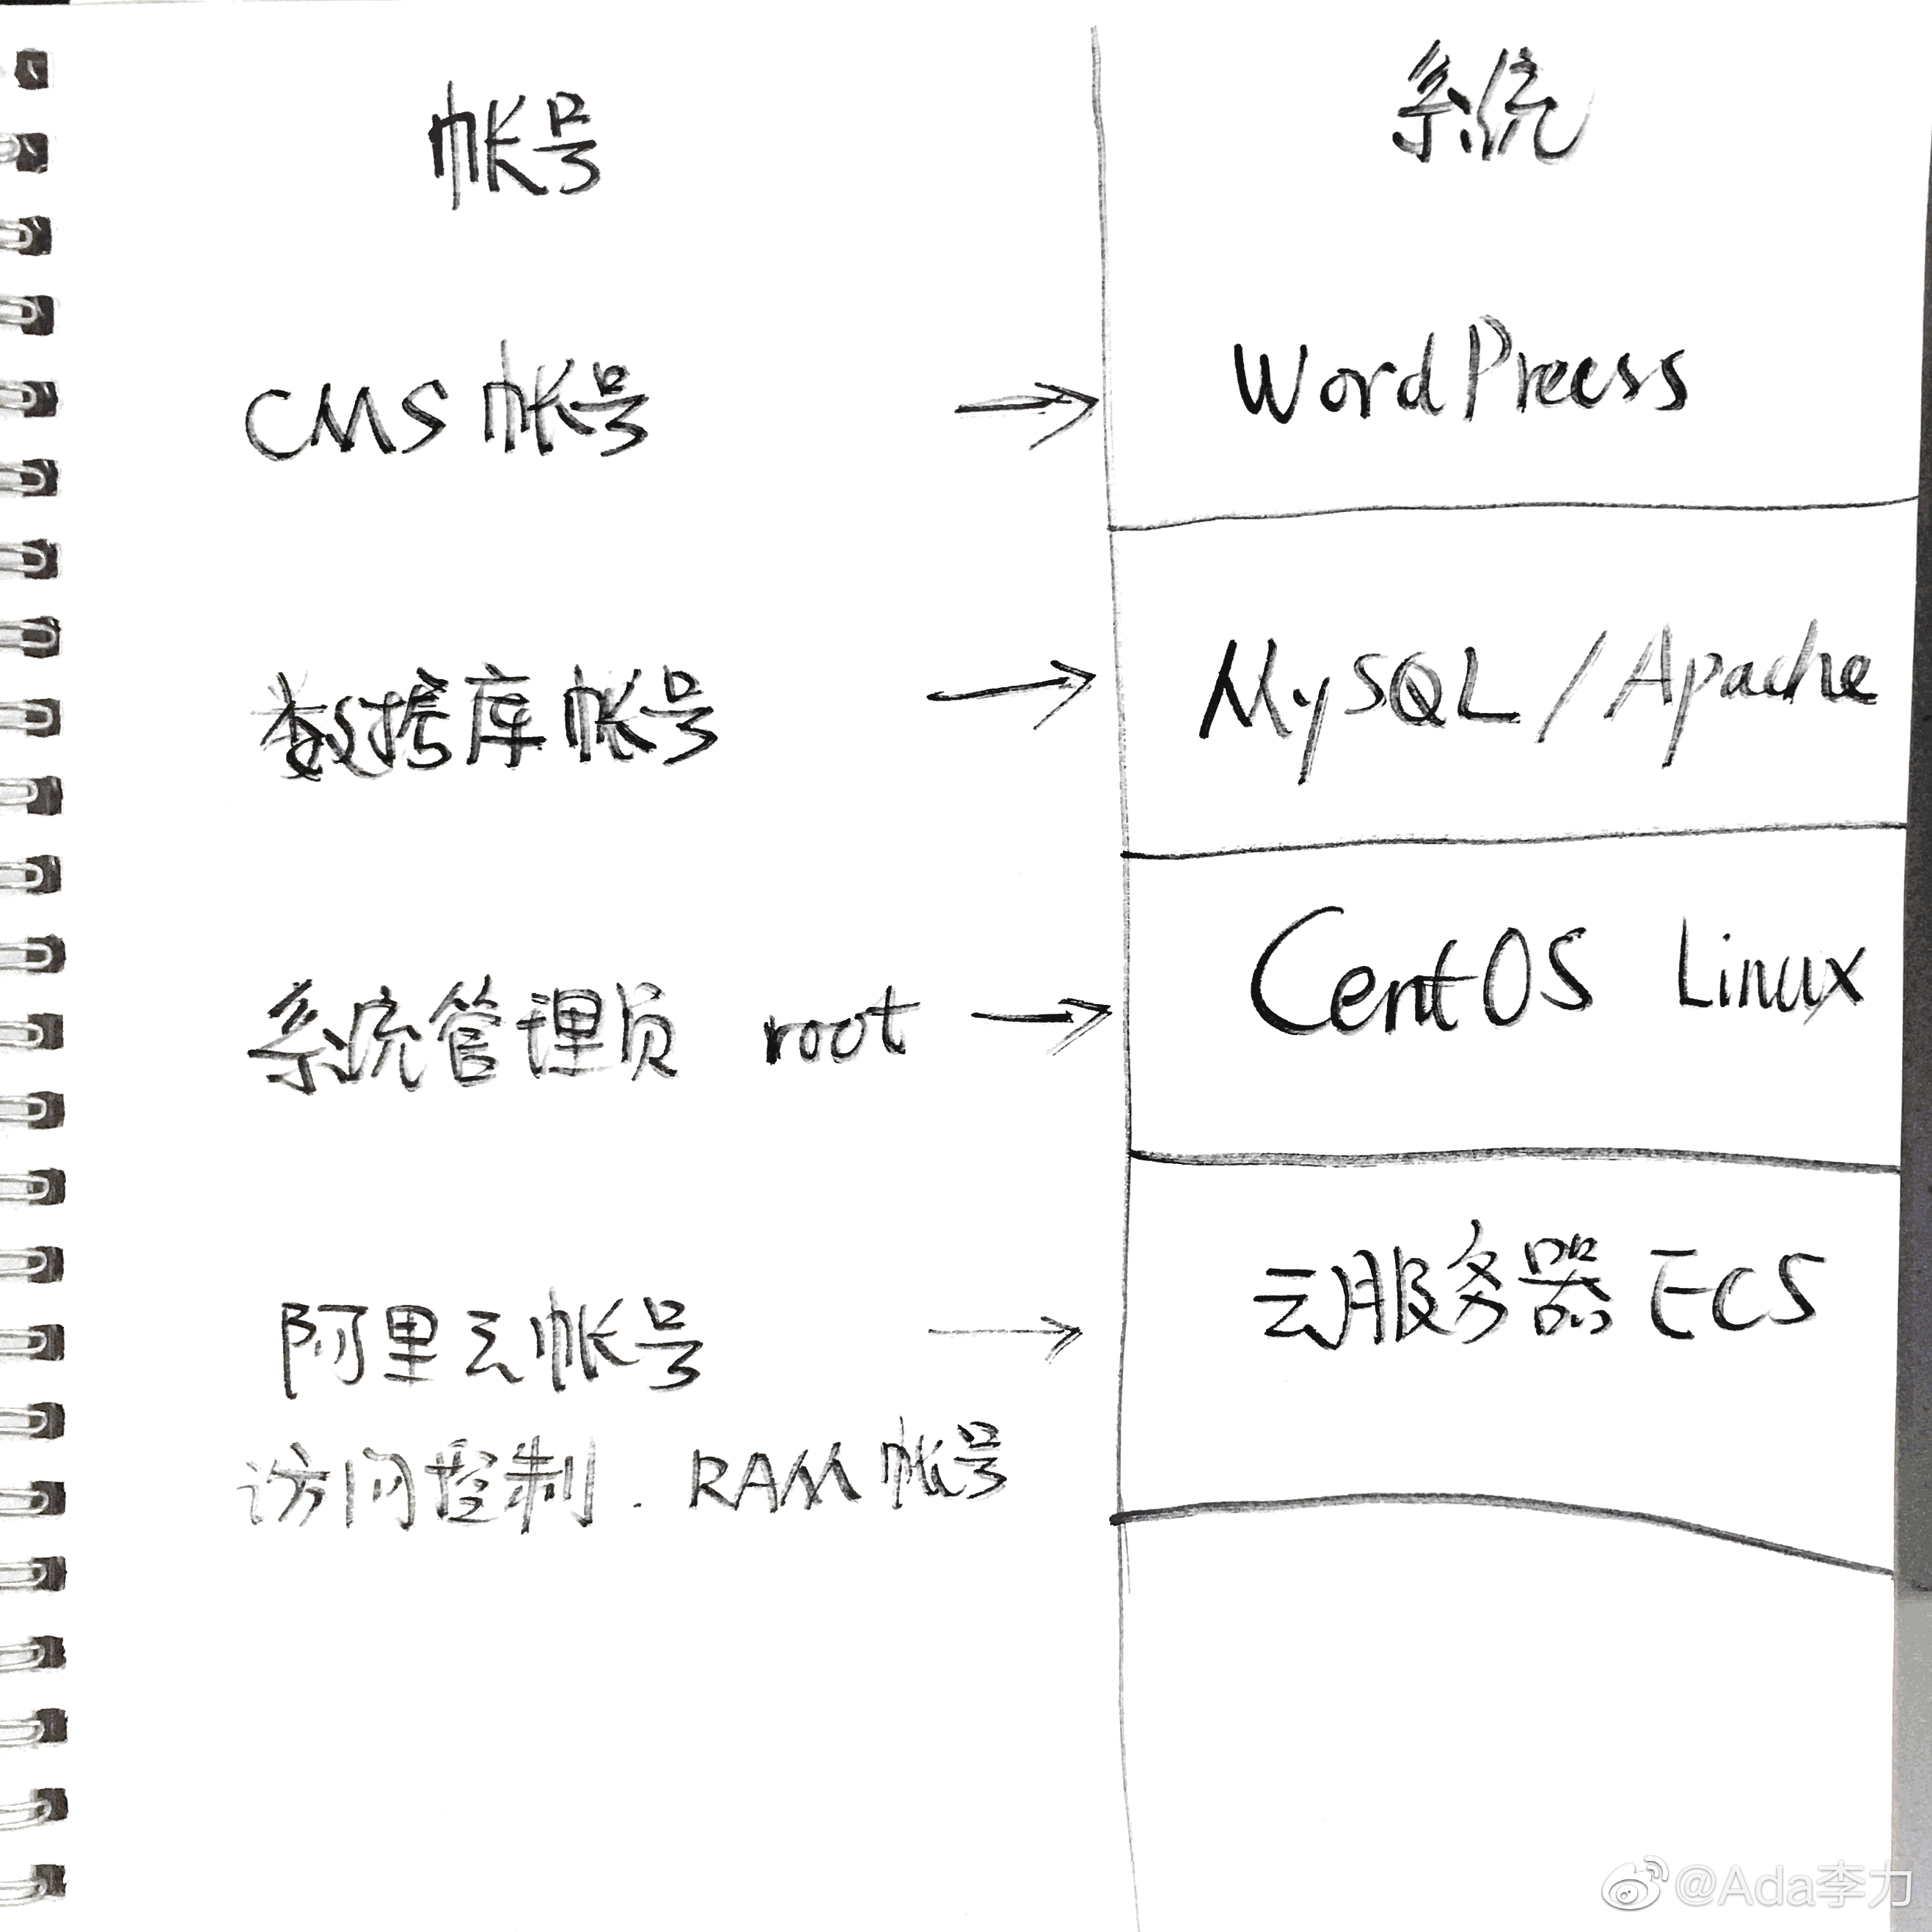 帐号 系统
CMS 帐号 → WordPreess
数据库帐号 → MySQL / Apache
系统管理员 root → CentOS Linux
阿里云帐号 → 云服务器 ECS
访问控制. RAM 帐号
@Ada李力